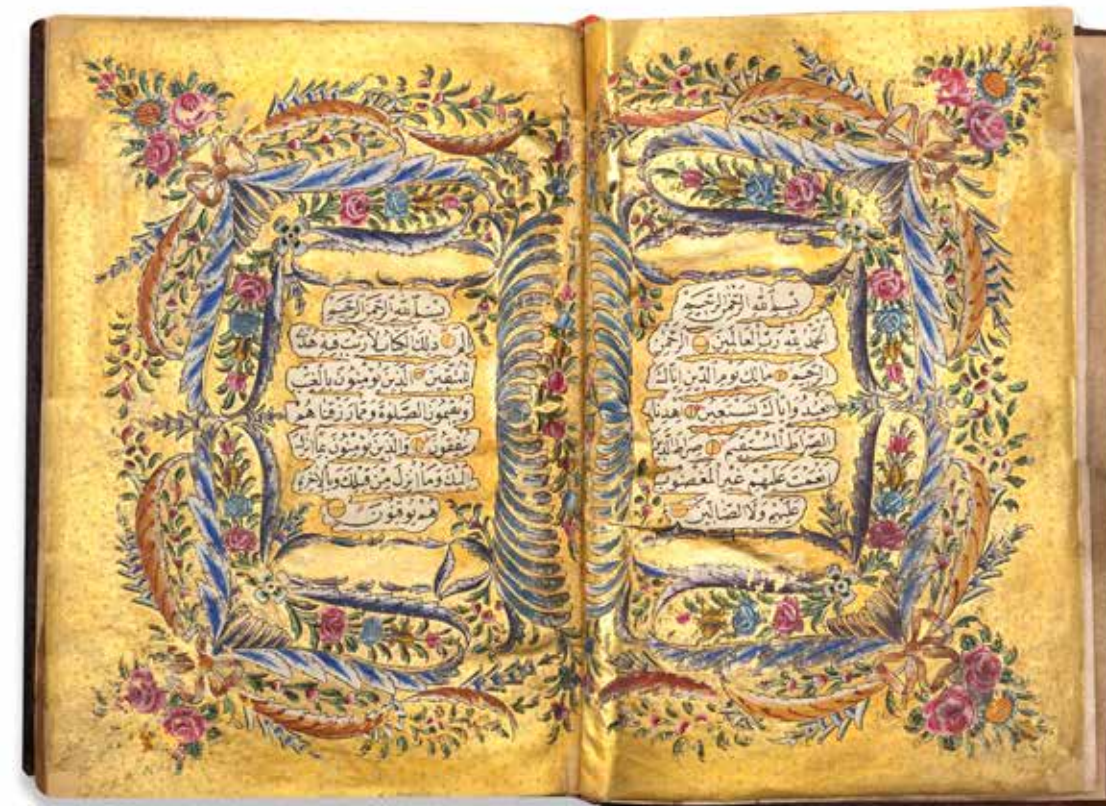 بسم الله الرحمن الرحيم
الحمد لله رب العالمين الرحمن
الرحيم مالك يوم الدين اياك
نعبد واياك نستعين اهدنا
الصراط المستقيم صراط الذين
انعمت عليهم غير المغضوب
عليهم ولا الضالين
بسم الله الرحمن الرحيم
الم ذلك الكتاب لا ريب فيه هدى
للمتقين الذين يؤمنون بالغيب
ويقيمون الصلوة ومما رزقناهم
ينفقون والذين يؤمنون بما انزل
اليك وما انزل من قبلك وبالاخرة
هم يوقنون